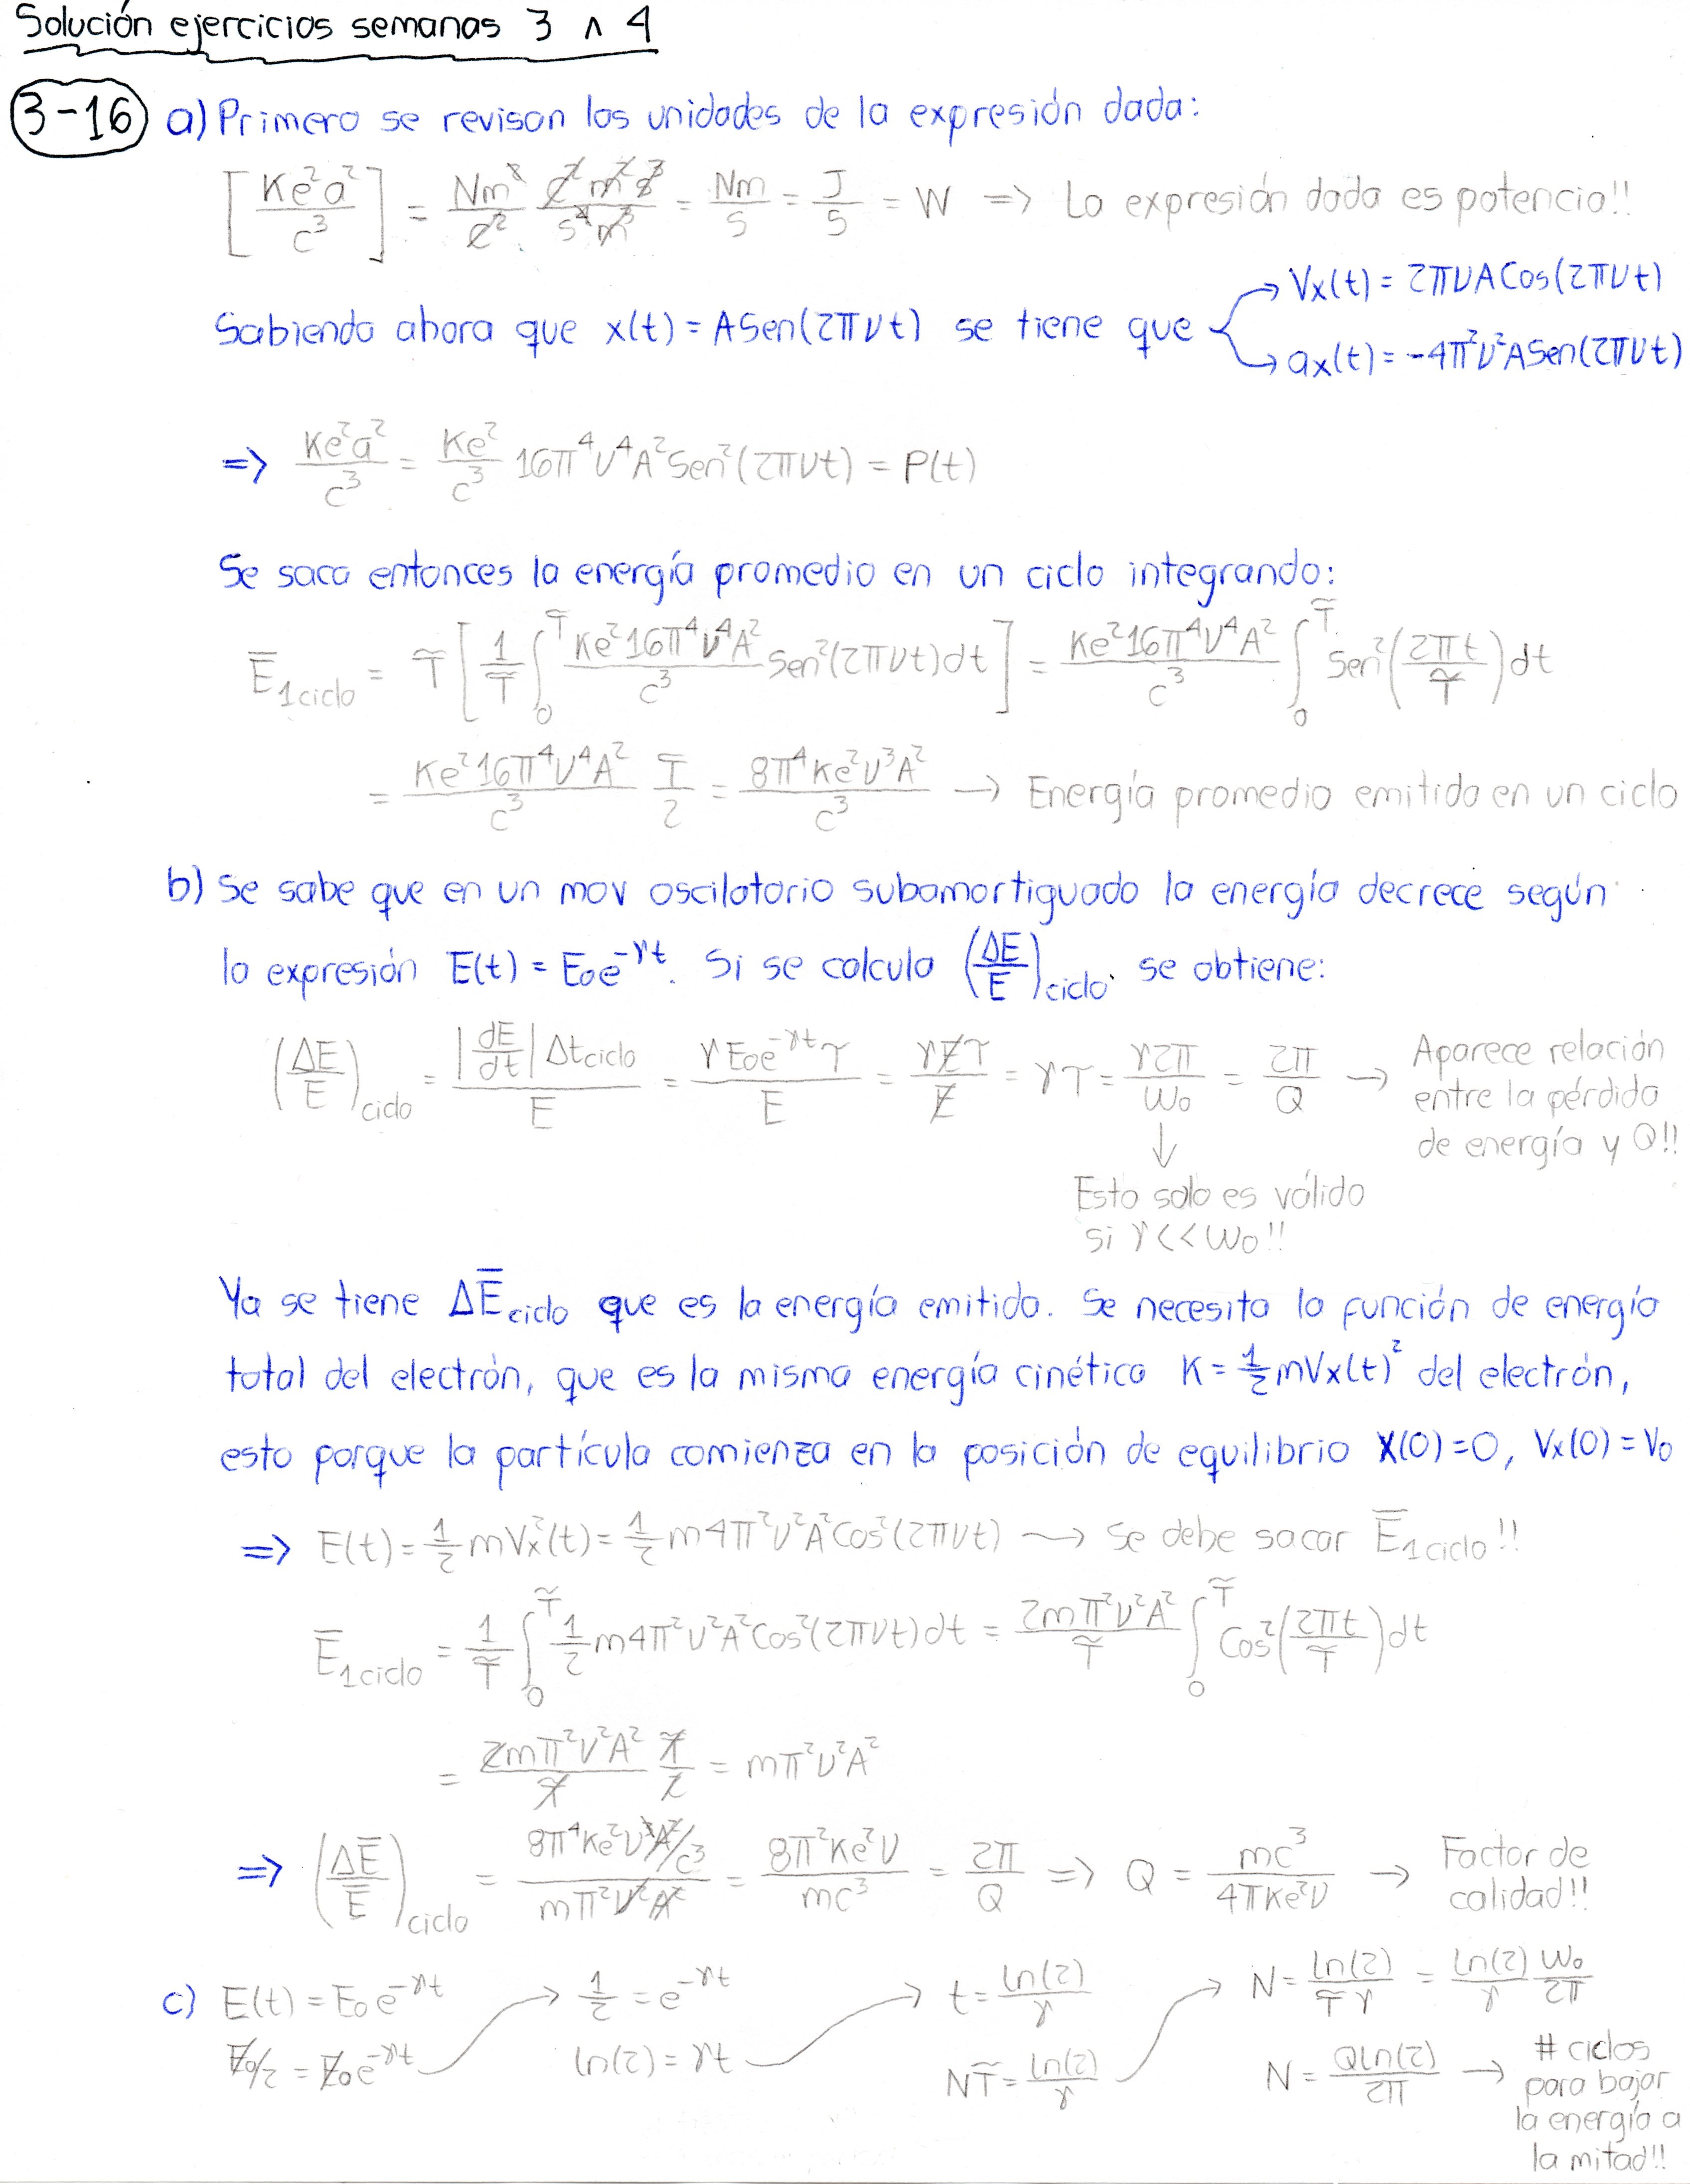 Solución ejercicios semanas 3 ∧ 4
3-16 a) Primero se revisan las unidades de la expresión dada:
[Ke²a²/c³] = Nm²/C² · C²m²s³/s⁴m³ = Nm/s = J/s = W => La expresión dada es potencia!!
Sabiendo ahora que x(t) = ASen(2πνt) se tiene que → Vx(t) = 2πνACos(2πνt)
→ ax(t) = -4π²ν²ASen(2πνt)
=> Ke²a²/c³ = Ke²/c³ 16π⁴ν⁴A²Sen²(2πνt) = P(t)
Se saca entonces la energía promedio en un ciclo integrando:
E̅1ciclo = T̃ [1/T̃ ∫₀^T̃ Ke²16π⁴ν⁴A²/c³ Sen²(2πνt)dt] = Ke²16π⁴ν⁴A²/c³ ∫₀^T̃ Sen²(2πt/T̃)dt
= Ke²16π⁴ν⁴A²/c³ T/2 = 8π⁴Ke²ν³A²/c³ → Energía promedio emitida en un ciclo
b) Se sabe que en un mov oscilatorio subamortiguado la energía decrece según
la expresión E(t) = E₀e^-γt. Si se calcula (ΔE/E)ciclo se obtiene:
(ΔE/E)ciclo = |dE/dt| Δtciclo / E = γE₀e^-γt T / E = γET/E = γT = γ2π/ω₀ = 2π/Q → Aparece relación
entre la pérdida
de energía y Q!!
↓
Esto solo es válido
si γ<<ω₀!!
Ya se tiene ΔE̅ciclo que es la energía emitida. Se necesita la función de energía
total del electrón, que es la misma energía cinética K = ½mVx(t)² del electrón,
esto porque la partícula comienza en la posición de equilibrio X(0)=0, Vx(0)=V₀
=> E(t) = ½mVx²(t) = ½m4π²ν²A²Cos²(2πνt) → Se debe sacar E̅1ciclo!!
E̅1ciclo = 1/T̃ ∫₀^T̃ ½m4π²ν²A²Cos²(2πνt)dt = 2mπ²ν²A²/T̃ ∫₀^T̃ Cos²(2πt/T̃)dt
= 2mπ²ν²A²/T̃ T̃/2 = mπ²ν²A²
=> (ΔE̅/E̅)ciclo = 8π⁴Ke²ν³A²/c³ / mπ²ν²A² = 8π²Ke²ν/mc³ = 2π/Q => Q = mc³/4πKe²ν → Factor de
calidad!!
c) E(t) = E₀e^-γt → ½ = e^-γt → t = ln(2)/γ → N = ln(2)/T̃γ = ln(2)/γ ω₀/2π
E₀/2 = E₀e^-γt ln(2) = γt NT̃ = ln(2)/γ N = Qln(2)/2π → # ciclos
para bajar
la energía a
la mitad!!